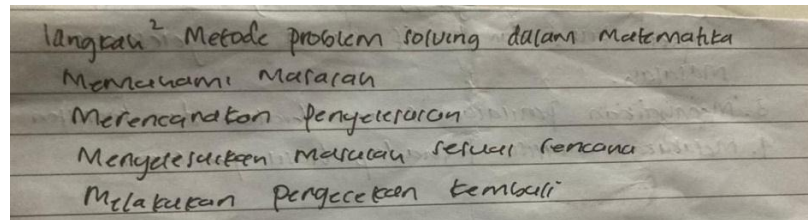 langkah² Metode problem solving dalam Matematika
Memahami Masalah
Merencanakan penyelesaian
Menyelesaikan masalah sesuai rencana
Melakukan pengecekan kembali